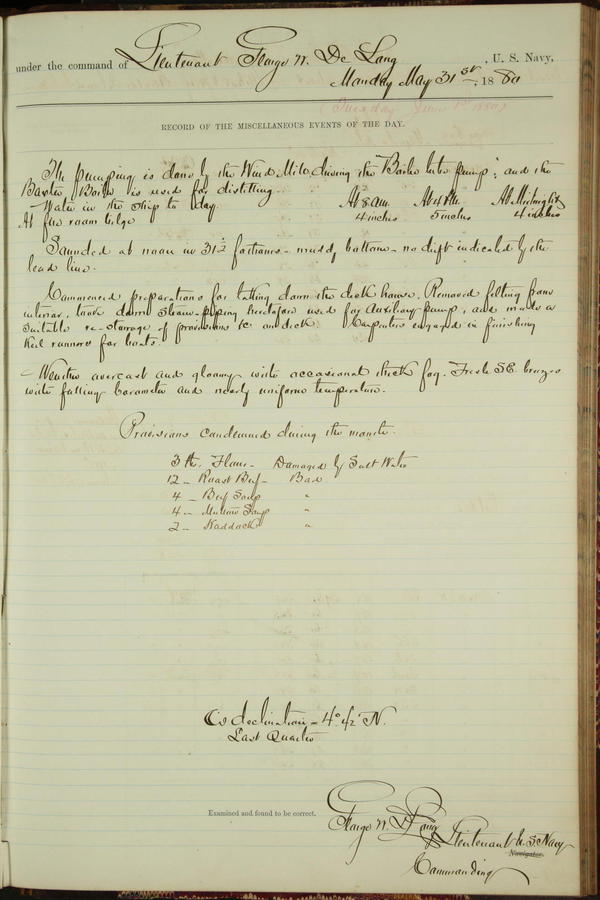 under the command of Lieutenant George W. De Long, U. S. Navy,
Monday May 31st, 1880
(Tuesday June 1st 1880)
RECORD OF THE MISCELLANEOUS EVENTS OF THE DAY.
The pumping is done by the Wind Mill driving the Bailer tube pump; and the
Baxter Boiler is used for distilling.
Water in the ship to day. At 8 a.m. At 4 P.M. At Midnight
At fire room bilge 4 inches 5 inches 4 inches
Sounded at noon in 31½ fathoms - muddy bottom - no drift indicated by the
lead line.
Commenced preparations for taking down the deck house. Removed felting from
interior, took down steam-piping heretofore used for Auxiliary pump, and made a
suitable re-stowage of provisions &c on deck. Carpenters engaged in finishing
keel runners for boats.
Weather overcast and gloomy with occasional thick fog. Fresh SE. breeze
with falling barometer and nearly uniform temperature.
Provisions condemned during the month.
3 lb. Flour - Damaged by Salt Water
12 - Roast Beef - Bad
4 - Beef Soup "
4 - Mutton Soup "
2 - Haddock "
☾'s declination - 4° 42' N.
Last Quarter
Examined and found to be correct.
George W. De Long Lieutenant U.S Navy
Navigator.
Commanding